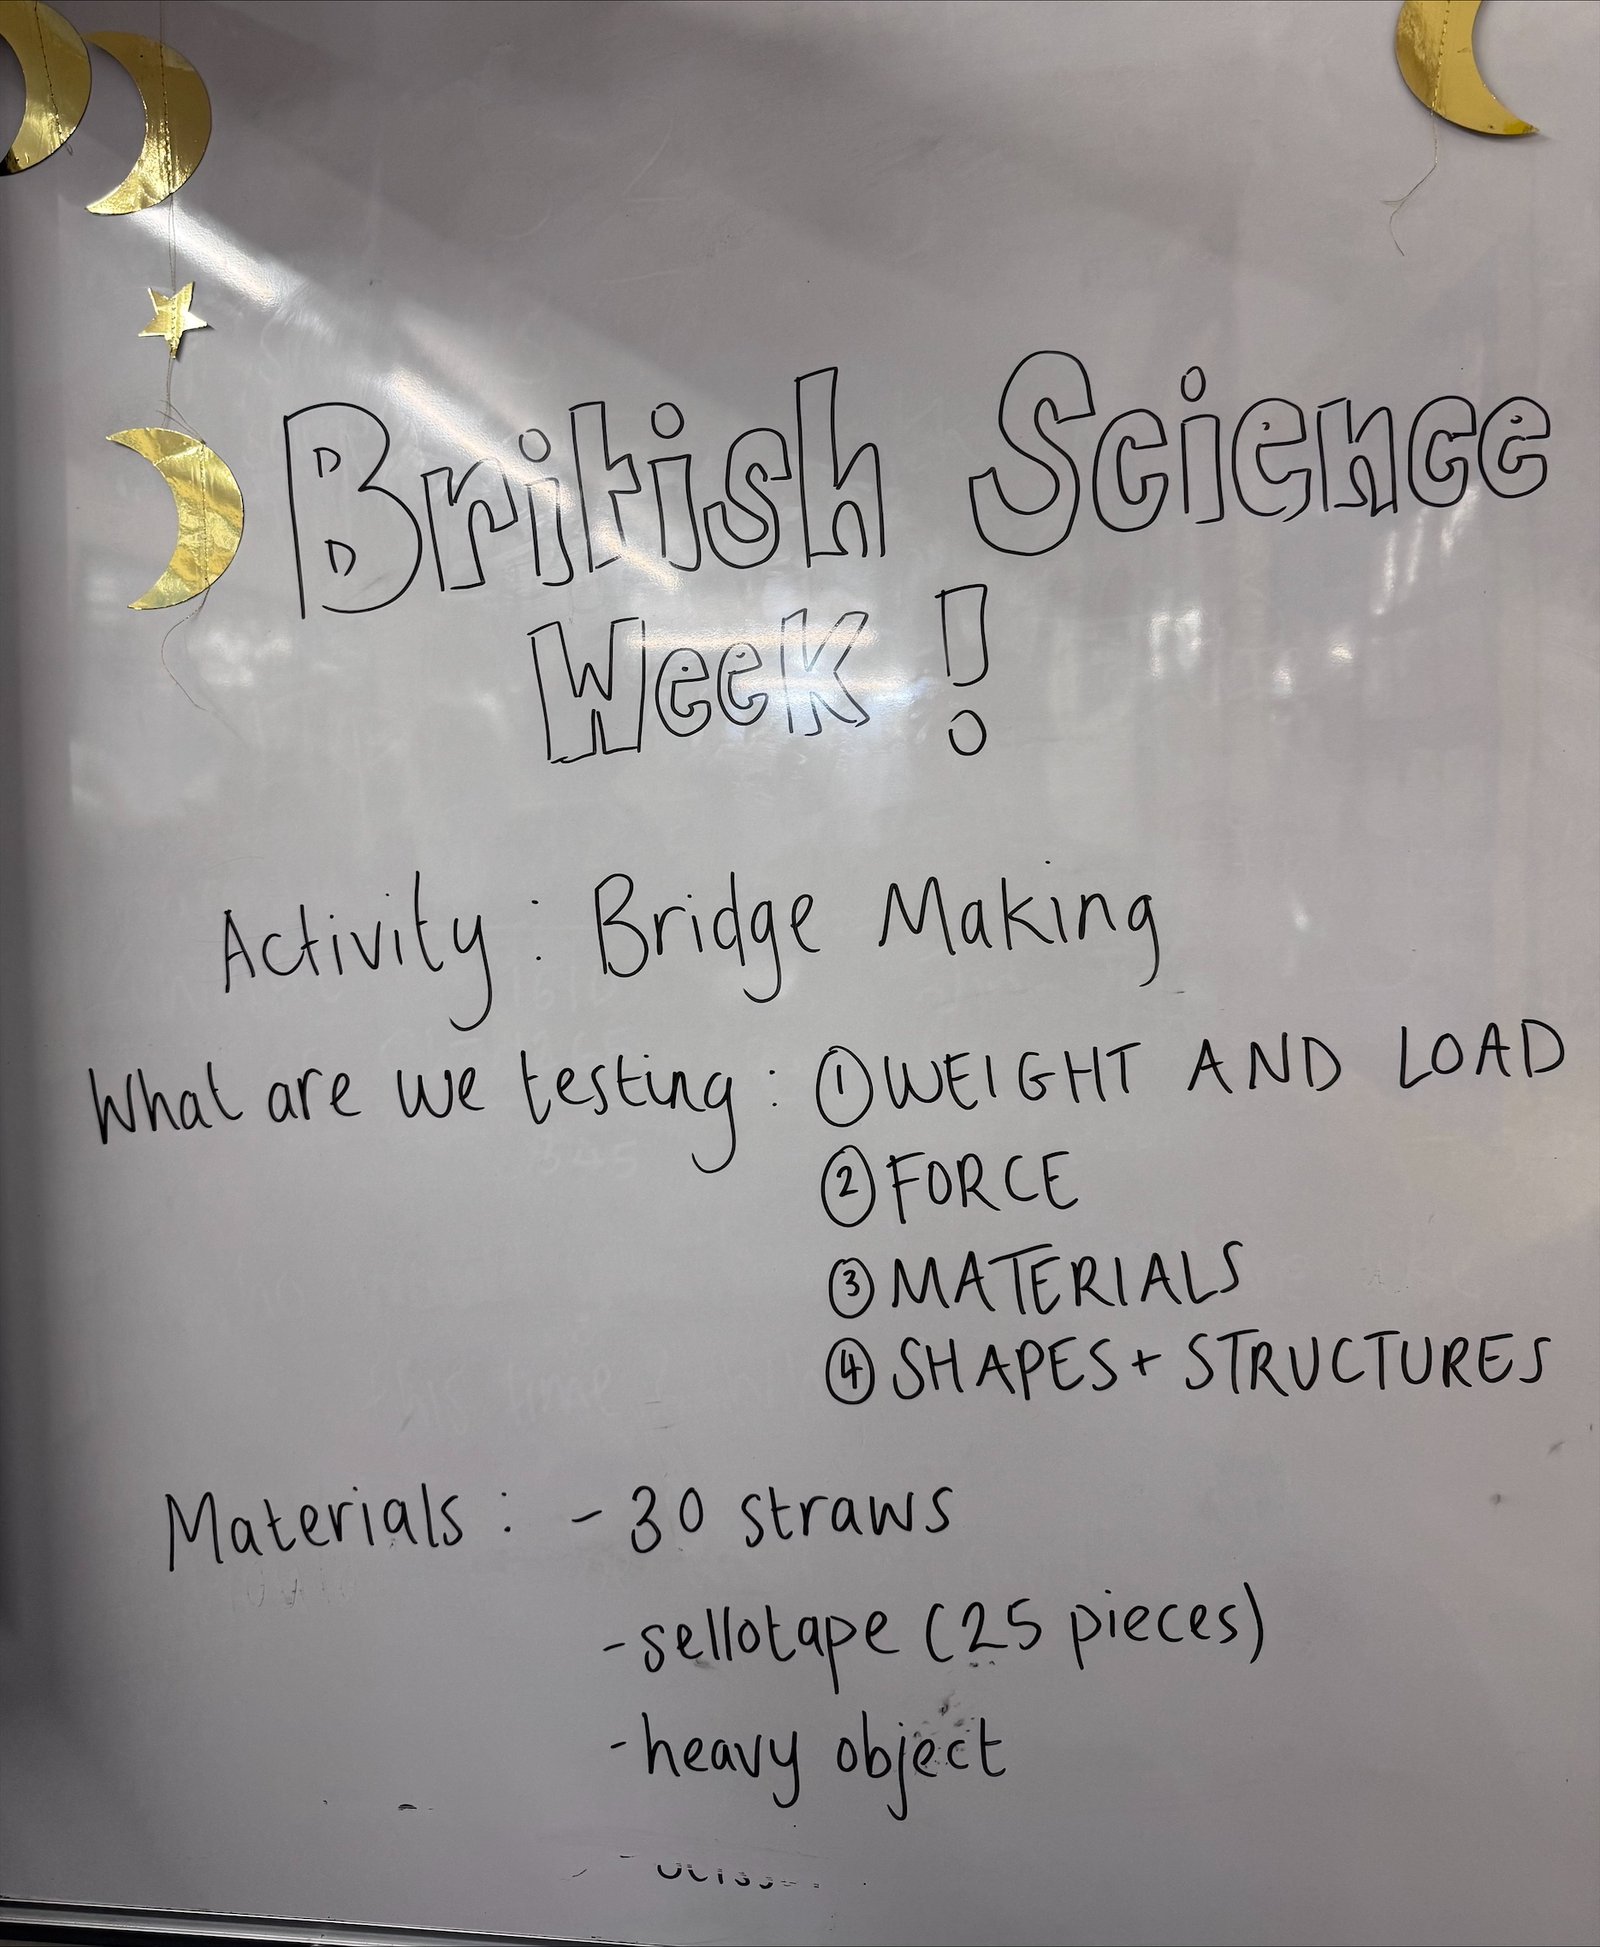 British Science
Week!
Activity: Bridge Making
What are we testing: ① WEIGHT AND LOAD
② FORCE
③ MATERIALS
④ SHAPES + STRUCTURES
Materials: - 30 straws
- sellotape (25 pieces)
- heavy object